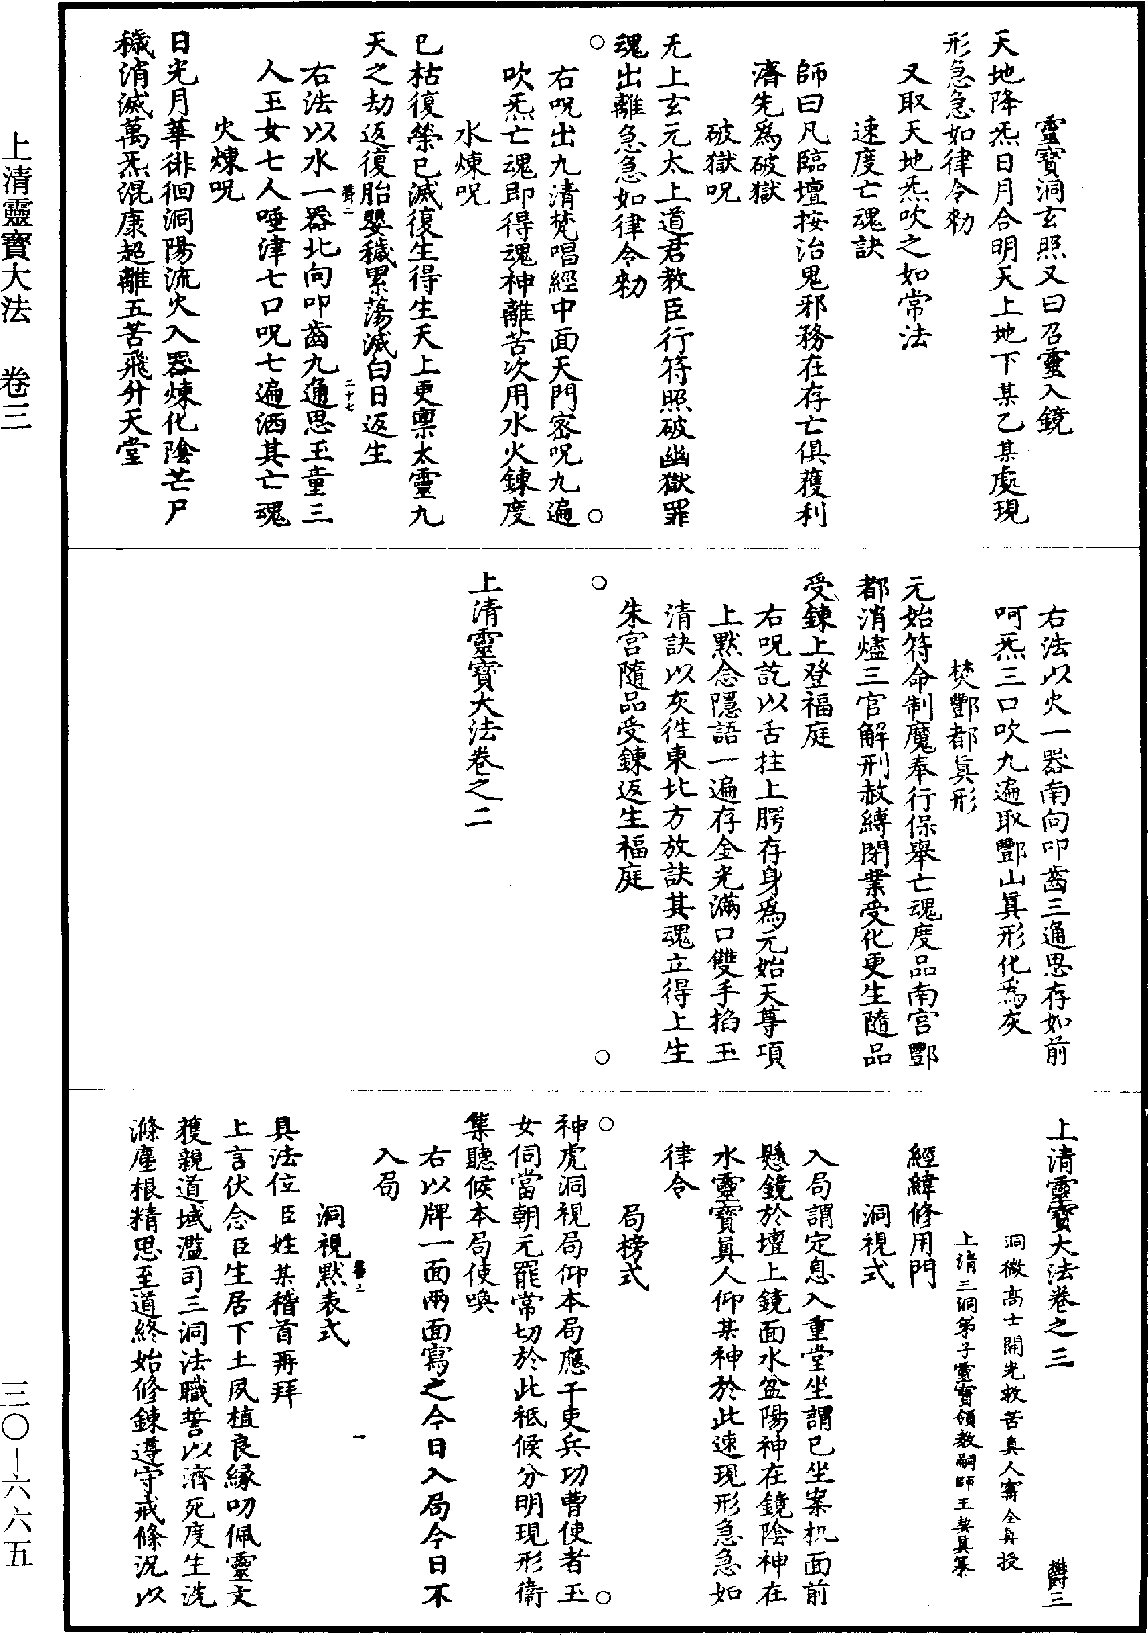 靈寶洞玄照又曰召靈入鏡
天地降炁日月合明天上地下某乙某處現
形急急如律令勑
又取天地炁吹之如常法
速度亡魂訣
師曰凡臨壇按治鬼邪務在存亡俱獲利
濟先爲破獄
破獄呪
无上玄元太上道君敕臣行符照破幽獄罪
魂出離急急如律令勑
右呪出九清梵唱經中面天門密呪九遍
吹炁亡魂即得魂神離苦次用水火鍊度
水煉呪
已枯復榮已滅復生得生天上更稟太靈九
天之劫返復胎嬰穢累蕩滅白日返生
右法以水一器北向叩齒九通思玉童三
人玉女七人唾津七口呪七遍洒其亡魂
二十七
火煉呪
日光月華徘徊洞陽流火入器煉化陰芒尸
穢消滅萬炁混康超離五苦飛升天堂
右法以火一器南向叩齒三通思存如前
呵炁三口吹九遍取酆山眞形化爲灰
焚酆都眞形
元始符命制魔奉行保舉亡魂度品南宮酆
都消燼三官解刑赦縛閉業受化更生隨品
受鍊上登福庭
右呪訖以舌拄上腭存身爲元始天尊項
上默念隱語一遍存金光滿口雙手掐玉
清訣以灰往東北方放訣其魂立得上生
朱宮隨品受鍊返生福庭
上清靈寶大法卷之二
上清靈寶大法卷之三
鬱三
洞微高士開光救苦真人甯全眞授
上清三洞弟子靈寶領教嗣師王契眞纂
經緯修用門
洞視式
入局謂定息入重堂坐謂已坐案机面前
懸鏡於壇上鏡面水盆陽神在鏡陰神在
水靈寶眞人仰某神於此速現形急急如
律令
局榜式
神虎洞視局仰本局應干吏兵功曹使者玉
女伺當朝元罷常切於此祗候分明現形衛
集聽候本局使喚
右以牌一面兩面寫之今日入局今日不
入局
洞視默表式
一
具法位臣姓某稽首再拜
上言伏念臣生居下土夙植良緣叨佩靈文
獲親道域濫司三洞法職誓以濟死度生洗
滌塵根精思至道終始修鍊遵守戒條況以
上清靈寶大法　卷三
三〇—六六五